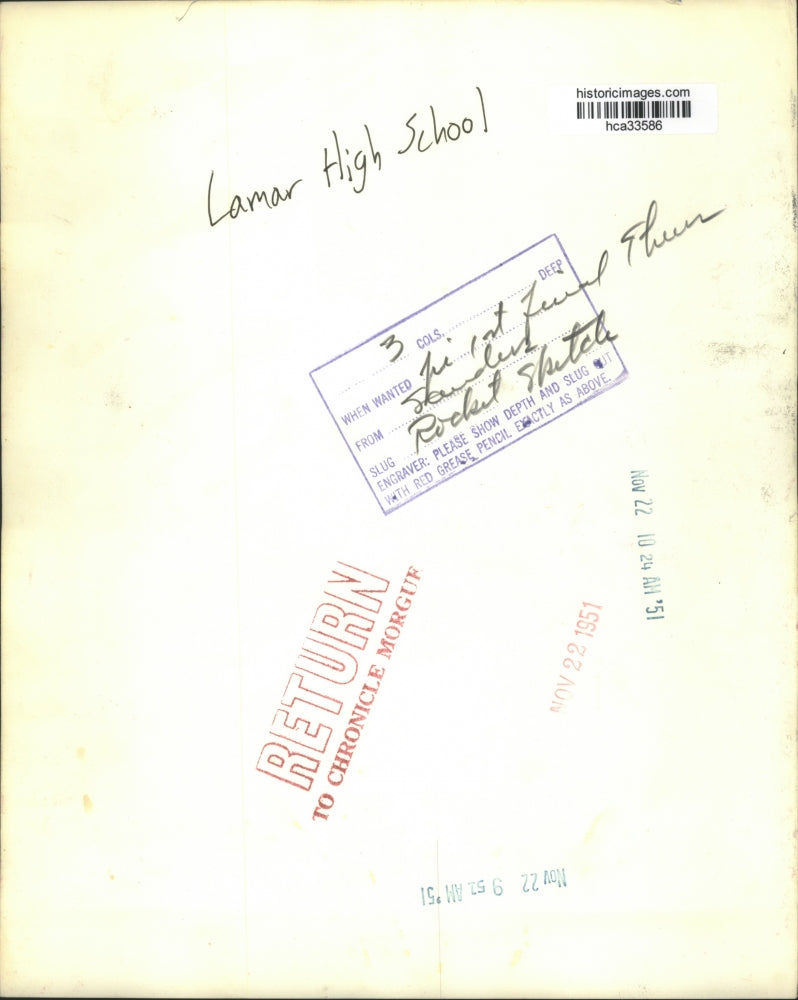 historicimages.com
hca33586
Lamar High School
3 COLS. DEEP
WHEN WANTED
FROM
SLUG Rocket Sketch
ENGRAVER: PLEASE SHOW DEPTH AND SLUG OUT
WITH RED GREASE PENCIL EXACTLY AS ABOVE.
NOV 22 10 24 AM '51
RETURN
TO CHRONICLE MORGUE
NOV 22 1951
NOV 22 9 52 AM '51